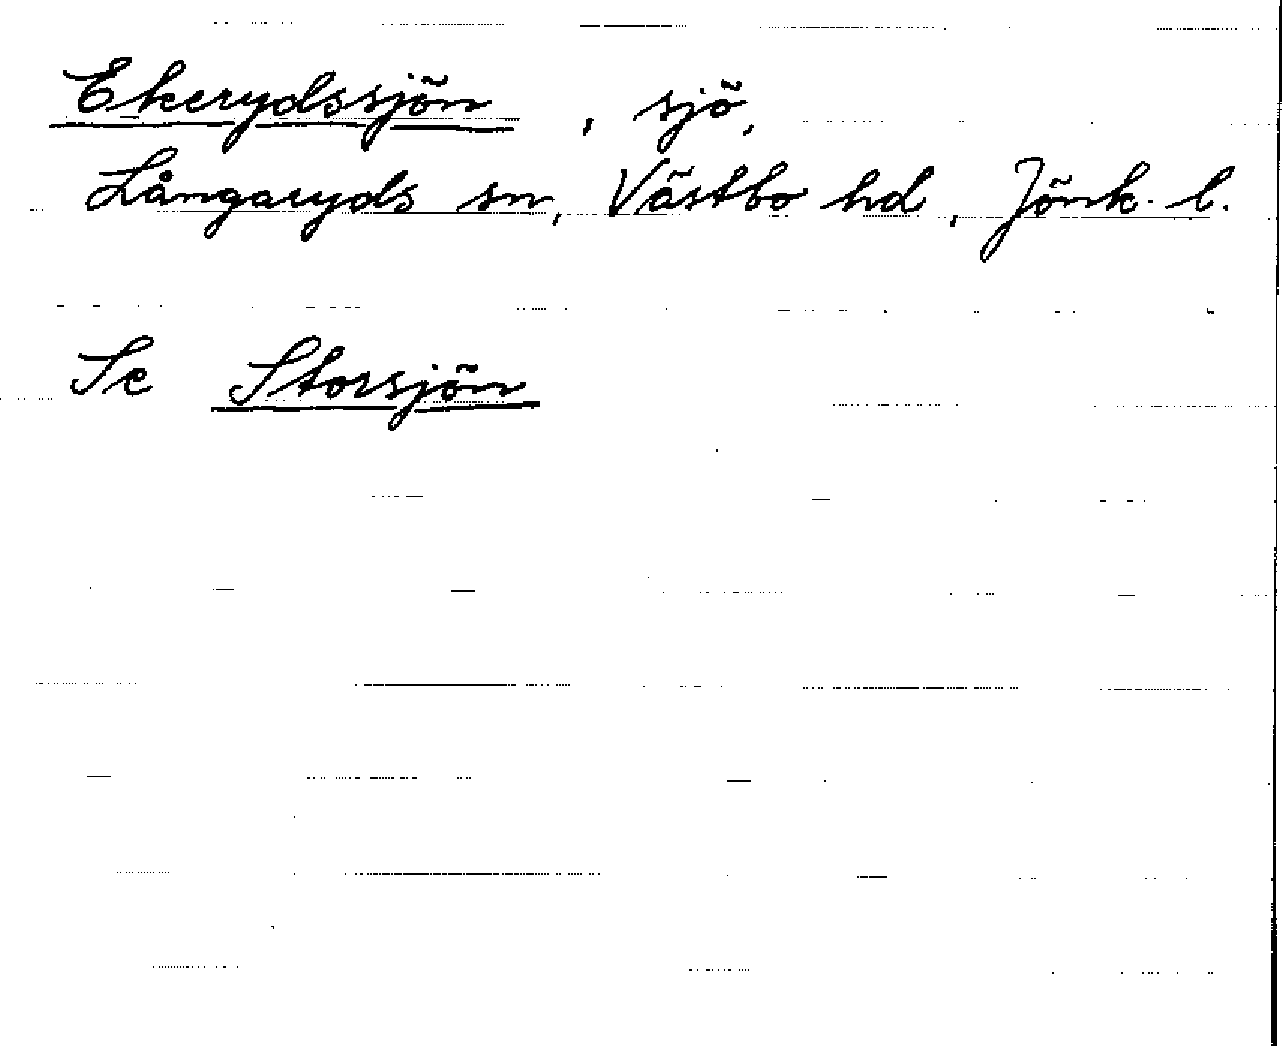 Ekerydssjön, sjö,
Långaryds sn, Västbo hd, Jönk. l.
Se Storsjön